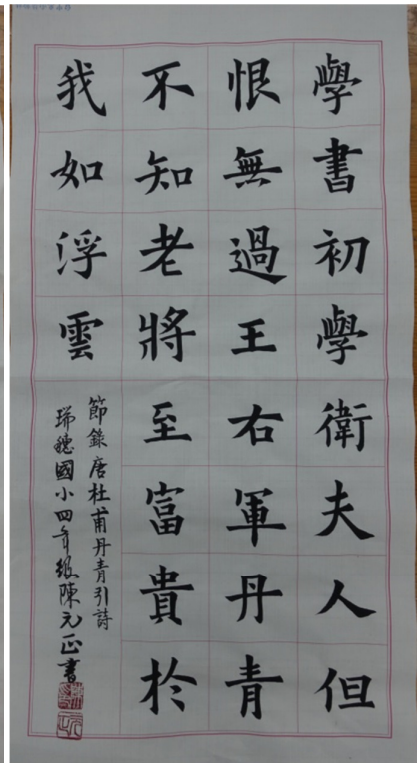 學書初學衛夫人但
恨無過王右軍丹青
不知老將至富貴於
我如浮雲
節錄唐杜甫丹青引詩
瑞穗國小四年級陳元正書